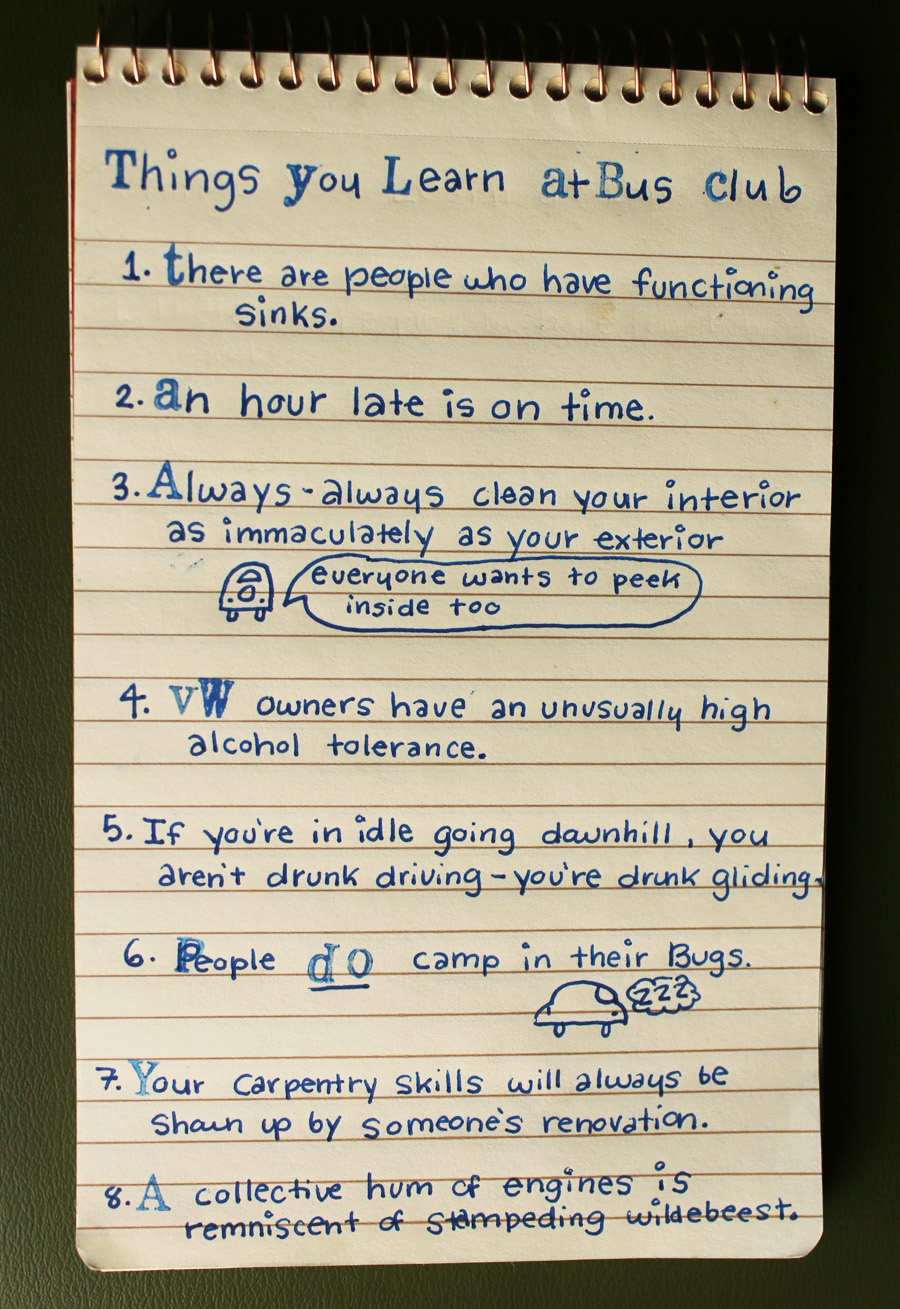 Things you Learn at Bus club
1. there are people who have functioning
sinks.
2. an hour late is on time.
3. Always - always clean your interior
as immaculately as your exterior
everyone wants to peek
inside too
4. VW owners have an unusually high
alcohol tolerance.
5. If you're in idle going downhill, you
aren't drunk driving - you're drunk gliding.
6. People do camp in their Bugs.
zzz
7. Your carpentry skills will always be
shown up by someone's renovation.
8. A collective hum of engines is
remniscent of stampeding wildebeest.